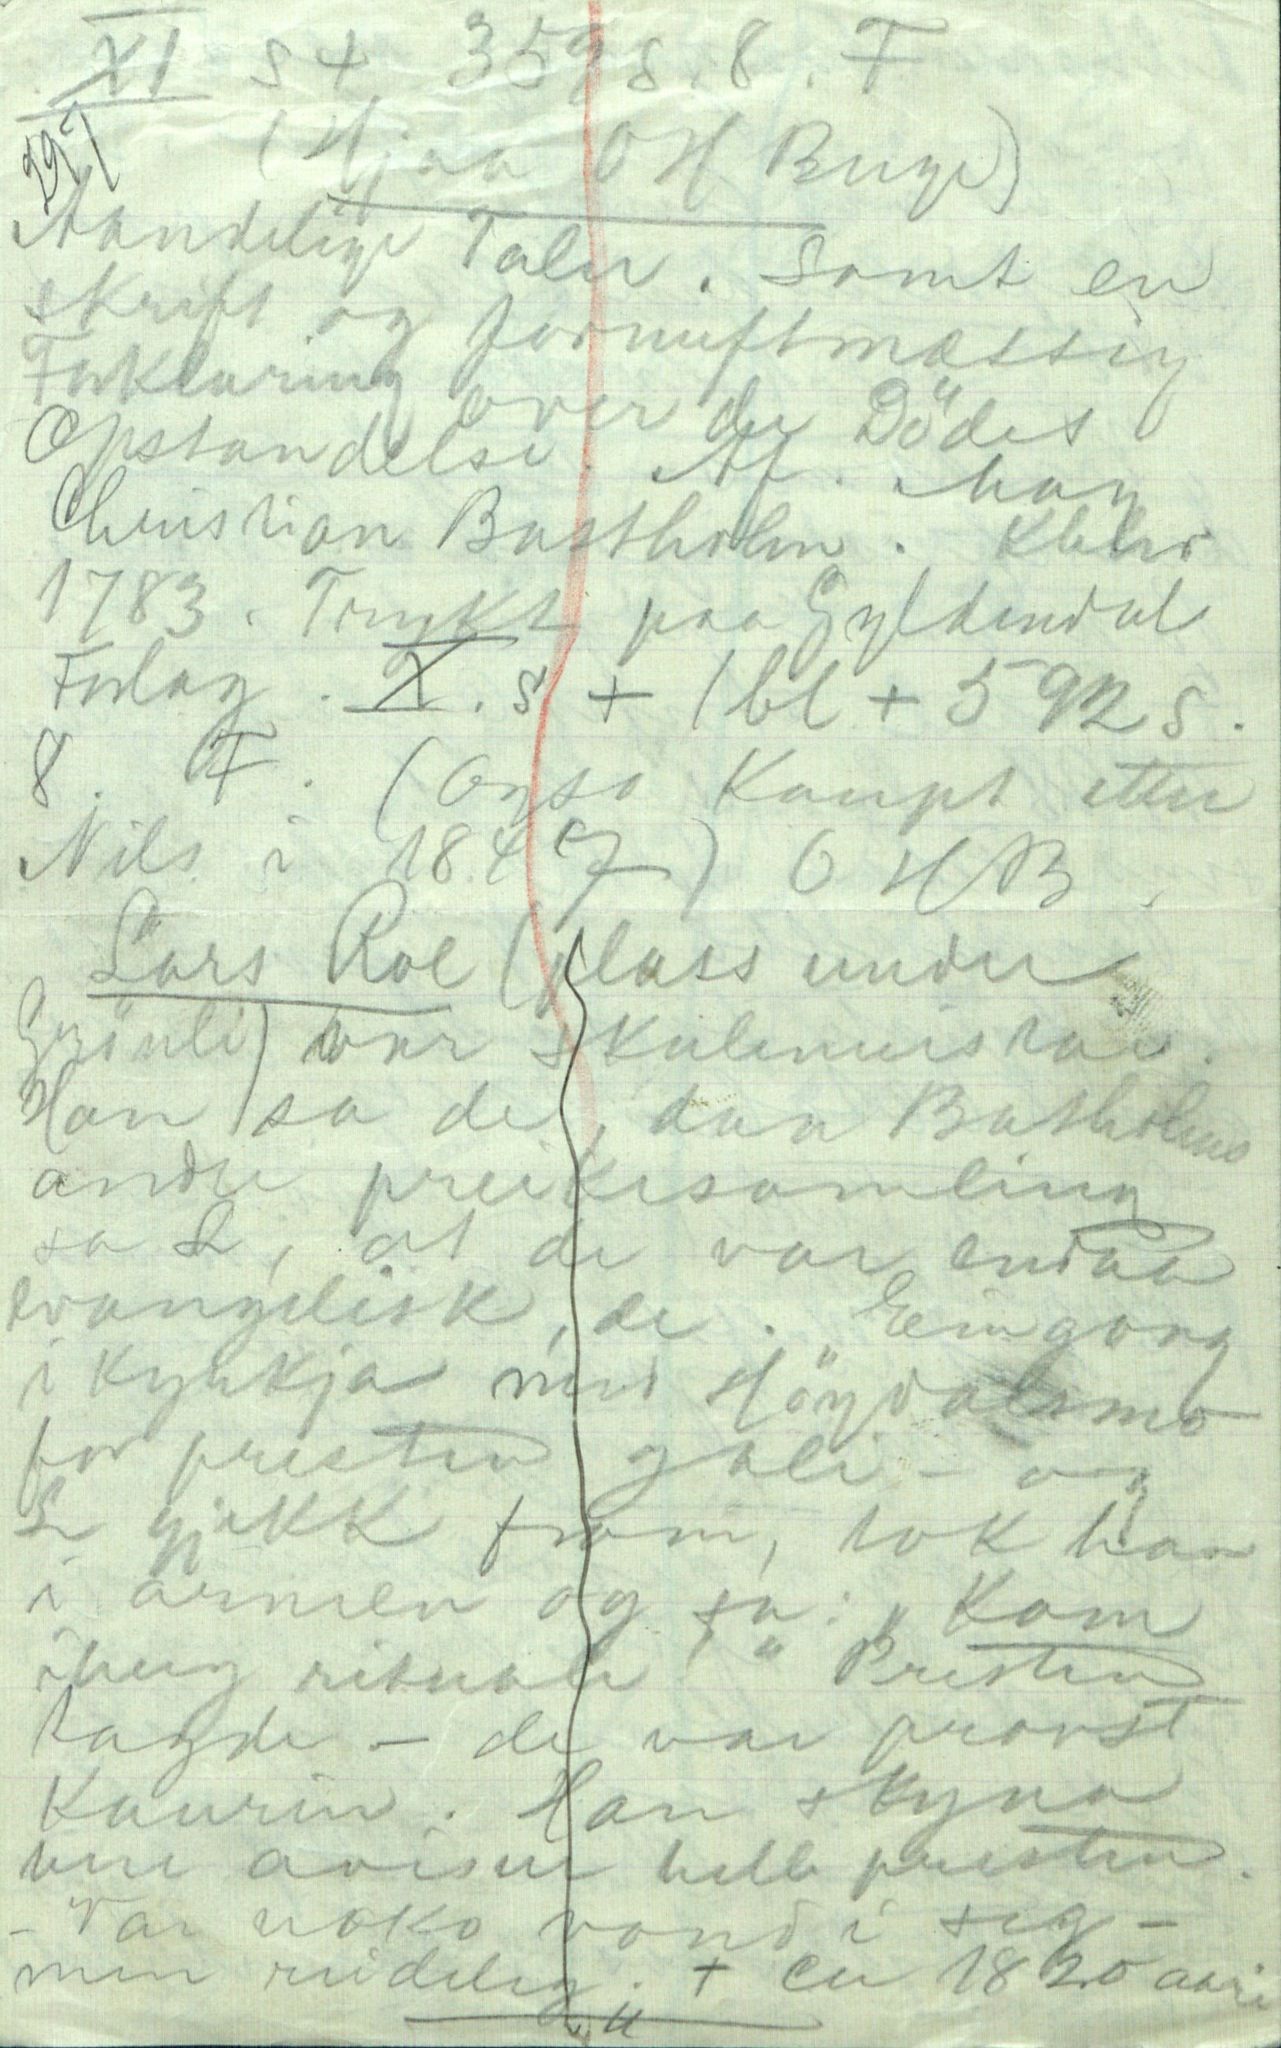 XI s + 359 s. 8. F
(Hjaa O H Buge)
397
Aandelige Taler. Samt en
skrift og fornuftmæssig
Forklaring over de Dödes
Opstandelse. Af. Mag
Christian Bastholm. Kbhv
1783. Trykt paa Gyldendal
Forlag. X. s + 1 bl + 592 s.
8. F. (Ogso Kaupt etter
Nils i 1847) O H B.
Lars Roe (plass under
Grönli) var skulemeistar.
Han sa de, daa Bastholms
andre preikesamling
sa L, at de var endaa
evangelisk, de. Eingong
i kyrkja ned Höydalsmo
for presten gale - og
L gjekk fram, tok han
i armen og sa: "Kom
ihug rituale" Presten
tagde - de var provst
Kaurin. Han skyna
avisur helle presten.
- Var noko vond i seg -
men reideleg. + Ca 1820 aari
"